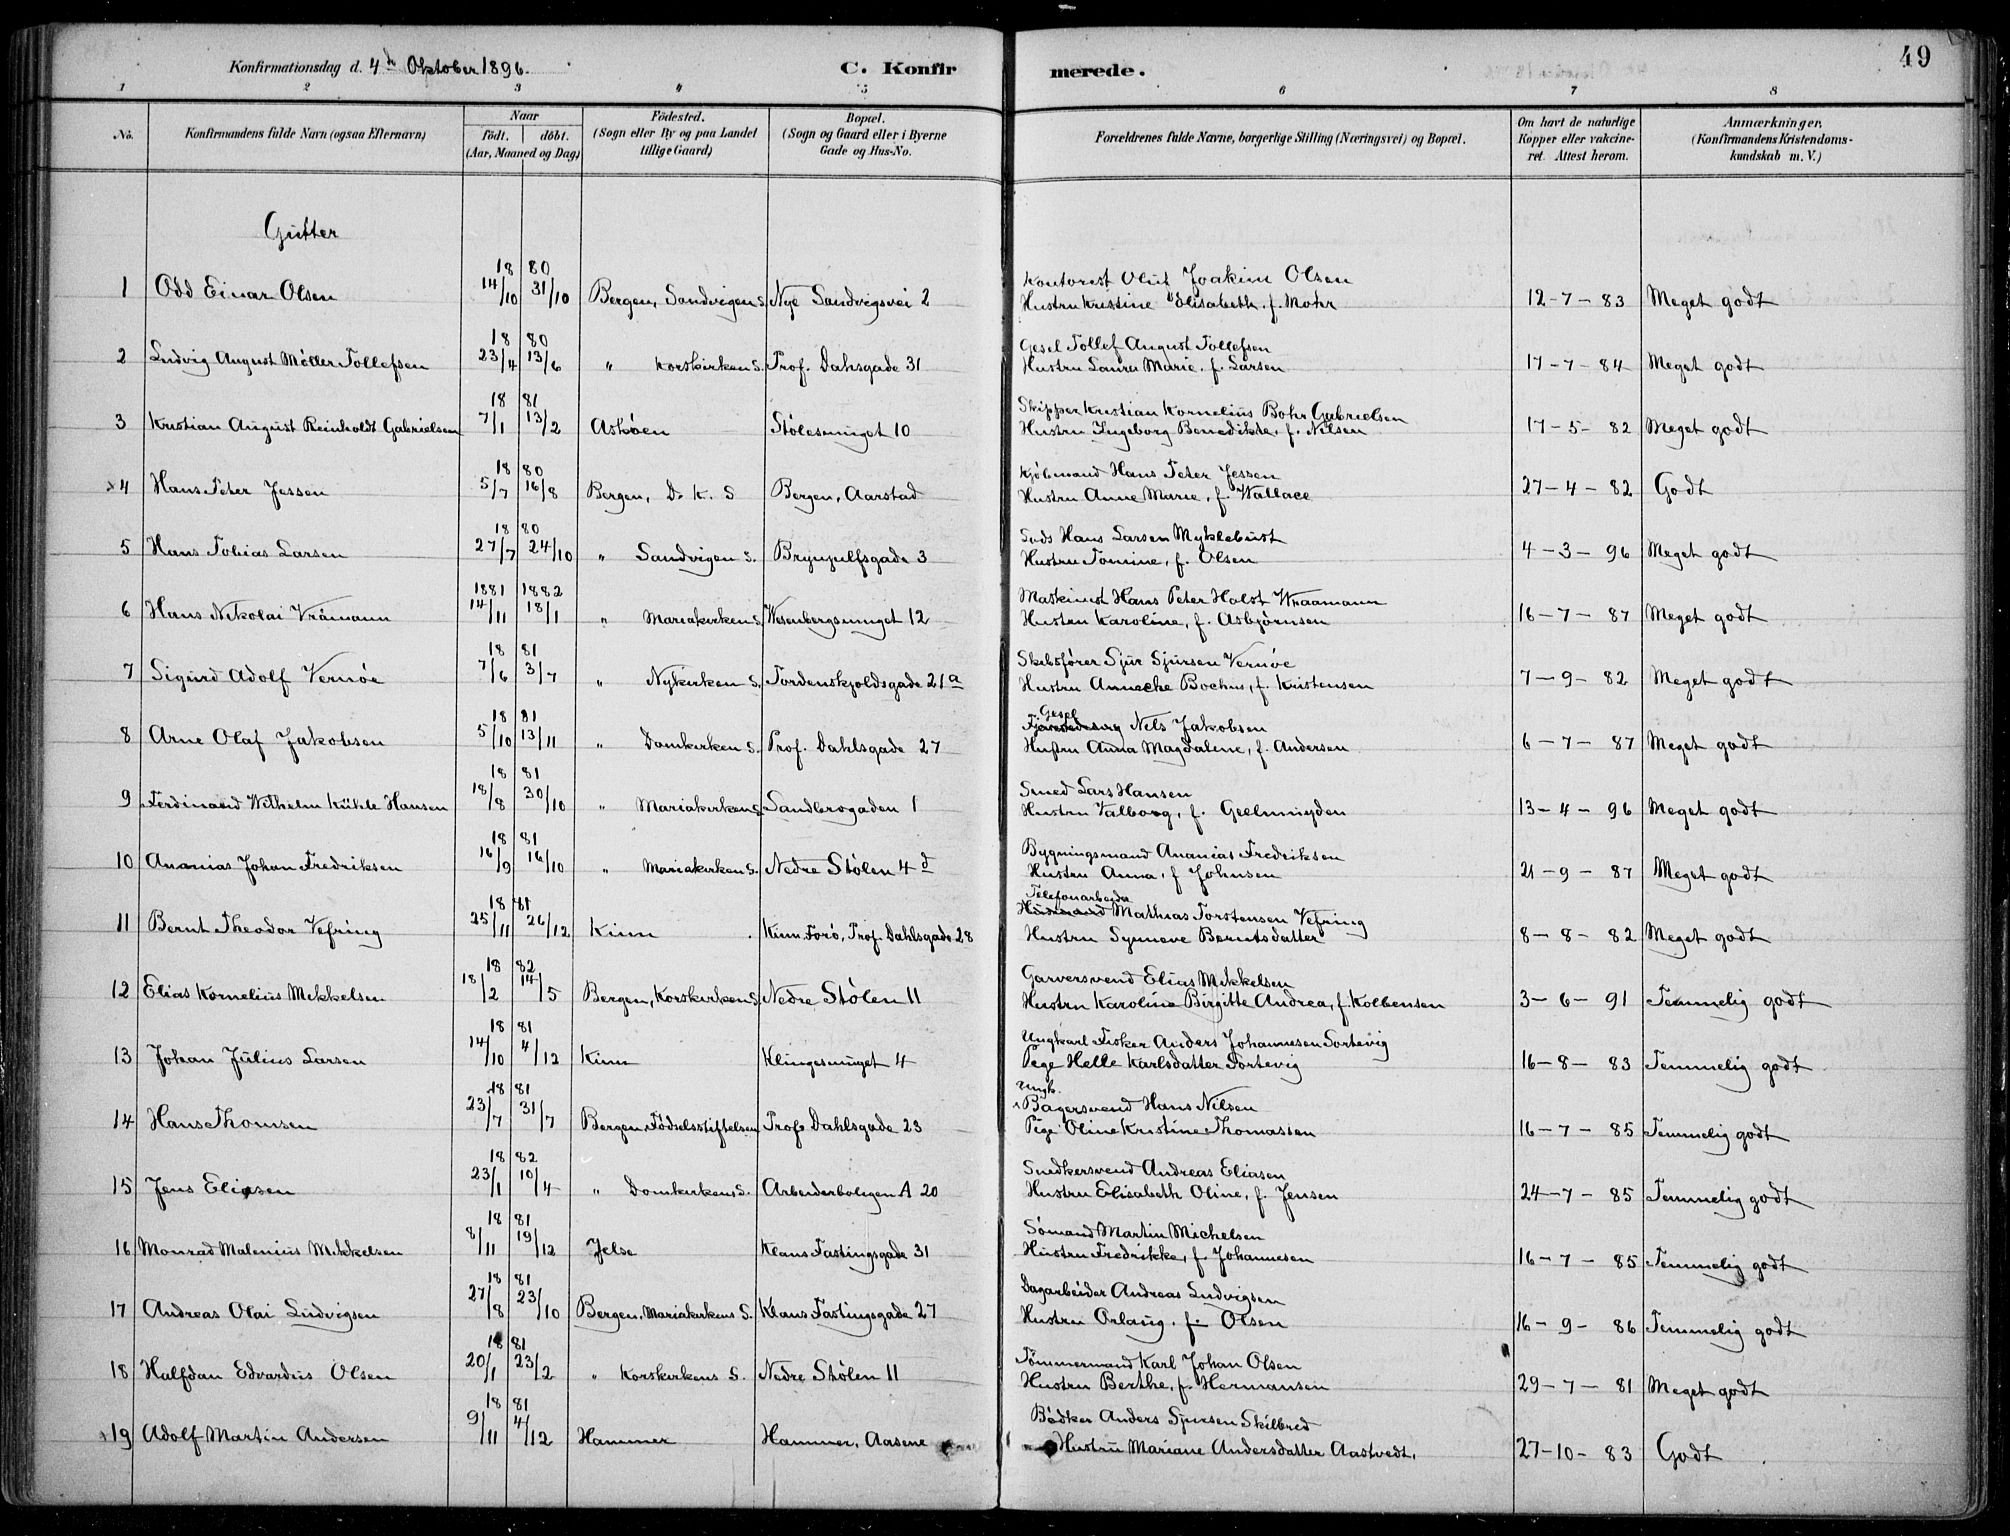 49
Konfirmationsdag d. 4de Oktober 1896.
C. Konfirmerede.
1 2 3 4 5 6 7 8
No. | Konfirmandens fulde Navn (ogsaa Efternavn) | Naar födt. döbt. (Aar, Maaned og Dag) | Födested. (Sogn eller By og paa Landet tillige Gaard) | Bopæl. (Sogn og Gaard eller i Byerne Gade og Hus-No. | Forældrenes fulde Navne, borgerlige Stilling (Næringsvei) og Bopæl. | Om havt de naturlige Kopper eller vakcineret. Attest herom. | Anmærkninger. (Konfirmandens Kristendomskundskab m. V.)
Gutter
1 Odd Einar Olsen 18 80 14/10 31/10 Bergen, Sandvigen S. Nye Sandvigsvei 2 Kontorist Oluf Joakim Olsen
Hustru Kristine Elisabeth, f. Mohr 12-7-83 Meget godt
2 Ludvig August Møller Tollefsen 18 80 23/4 13/6 " Korskirken S. Prof. Dahlsgade 31 Gesel Tollef August Tollefsen
Hustru Laura Marie. f. Larsen 17-7-84 Meget godt
3 Kristian August Reinholdt Gabrielsen 18 81 7/1 13/2 Askøen Stølesmuget 10 Skipper Kristian Kornelius Bohr Gabrielsen
Hustru Ingeborg Benedikte, f. Nilsen 17-5-82 Meget godt
×4 Hans Peter Jessen 18 80 5/7 16/8 Bergen, D. K. S Bergen, Aarstad Kjøbmand Hans Peter Jessen
Hustru Anne Marie, f. Wallace 27-4-82 Godt
5 Hans Tobias Larsen 18 80 27/7 24/10 " Sandvigen S. Brynjulfsgade 3 Hans Larsen Myklebust
Hustru Tomine, f. Olsen 4-3-96 Meget godt
6 Hans Nikolai Vråmann 1881 1882 14/11 18/1 " Mariakirken S. Wesenbergsmuget 12 Maskinist Hans Peter Holst Wraamann
Hustru Karoline, f. Asbjørnsen 16-7-87 Meget godt
7 Sigurd Adolf Vernøe 18 81 7/6 3/7 " Nykirken S. Tordenskjoldsgade 21a Skibsfører Sjur Sjursen Vernøe
Hustru Annecke Bochus, f. Kristensen 7-9-82 Meget godt
8 Arne Olaf Jakobsen 18 81 5/10 13/11 " Domkirken S. Prof. Dahlsgade 27 Gesel Nels Jakobsen
Hustru Anna Magdalene, f. Andersen 6-7-87 Meget godt
9 Ferdinand Wilhelm Kühle Hansen 18 81 18/8 30/10 " Mariakirken S. Sandbrogaden 1 Smed Lars Hansen
Hustru Valborg, f. Geelmuyden 13-4-96 Meget godt
10 Ananias Johan Fredriksen 18 81 16/9 16/10 " Mariakirken S. Nedre Stølen 4d Bygningsmand Ananias Fredriksen
Hustru Anna, f Johnsen 21-9-87 Meget godt
11 Bernt Theodor Vefring 18 81 25/11 26/12 Kinn Kinn. Forø, Prof. Dahlsgade 28 Telefonarbeider Mathias Torstensen Vefring
Hustru Synneve Berntsdatter 8-8-82 Meget godt
12 Elias Kornelius Mikkelsen 18 82 18/2 14/5 Bergen, Korskirken S. Nedre Stølen 11 Garversvend Elias Mikkelsen
Hustru Karoline Birgitte Andrea, f. Kolbensen 3-6-91 Temmelig godt
13 Johan Julius Larsen 18 81 14/10 4/12 Kinn Klingesmuget 4 Ungkarl Fisker Anders Johannesen Sortevig
Pige Helle Karlsdatter Sortevig 16-8-83 Temmelig godt
14 Hans Thomsen 18 81 23/7 31/7 Bergen, Fødselsstiftelsen Prof. Dahlsgade 23 Ungk. Bagersvend Hans Nilsen
Pige Oline Kristine Thomassen 16-7-85 Temmelig godt
15 Jens Eliasen 18 82 23/1 10/4 " Domkirkens S. Arbeiderboligen A 20 Snedkersvend Andreas Eliasen
Hustru Elisabeth Oline, f. Jensen 24-7-85 Temmelig godt
16 Monrad Malenius Mikkelsen 18 81 8/11 19/12 Jelse Klaus Fastingsgade 31 Sømand Martin Michelsen
Hustru Fredrikke, f. Johannesen 16-7-85 Temmelig godt
17 Andreas Olai Ludvigsen 18 81 27/8 23/10 Bergen, Mariakirkens S. Klaus Fastingsgade 27 Dagarbeider Andreas Ludvigsen
Hustru Orlaug, f. Olsen 16-9-86 Temmelig godt
18 Halfdan Edvardus Olsen 18 81 20/1 23/2 " Korskirkens S. Nedre Stølen 11 Tømmermand Karl Johan Olsen
Hustru Berthe, f. Hermansen 29-7-81 Meget godt
×19 Adolf Martin Andersen 18 81 9/11 4/12 Hammer Hammer, Aasene Bødker Anders Sjursen Skilbred
Hustru Mariane Andersdatter Aastvedt. 27-10-83 Godt